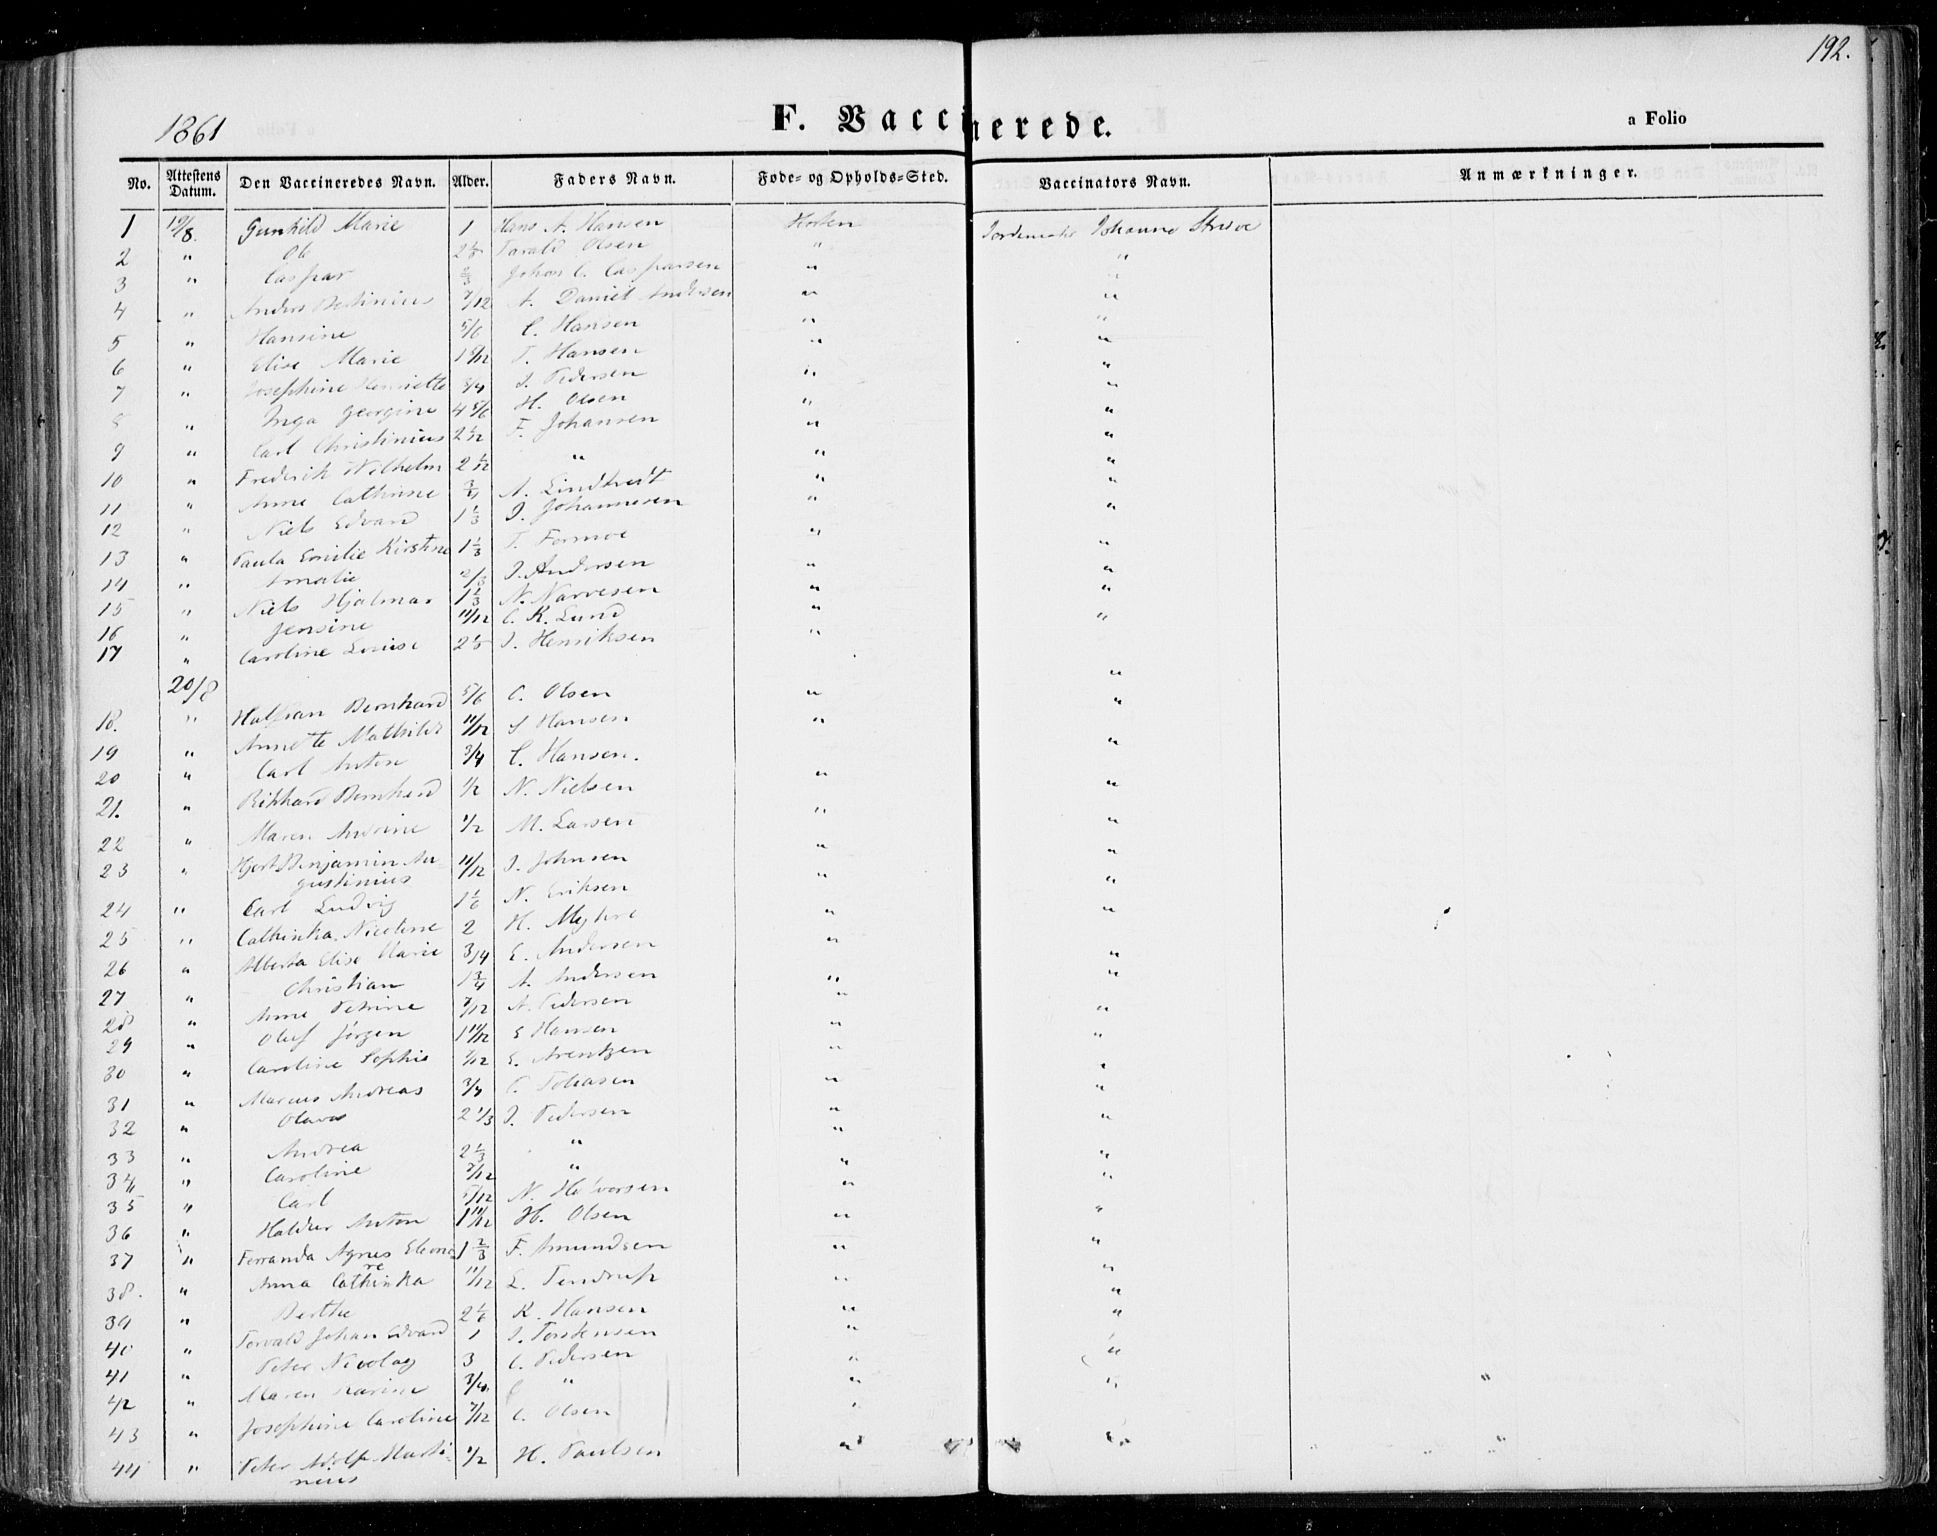 192.
1861
F. Vaccinerede.
a Folio
No. Attestens Datum. Den Vaccineredes Navn. Alder. Faders Navn. Føde- og Opholds-Sted. Vaccinators Navn. Anmærkninger.
1 19/8. Gunhild Marie 1 Hans A. Hansen Horten Johanne
2 " Ole Tarald Olsen " "
3 " Caspar 2/3 Johan C. Caspersen " "
4 " Anders 7/12 A. Daniel Andersen " "
5 " Hansine 5/6 C. Hansen " "
6 " Elise Marie T. Hansen " "
7 " Josephine Henriette 3/4 J. Pedersen " "
8 " Inga Georgine 4 5/6 H. Olsen " "
9 " Carl Christinius 2 1/12 F. Johansen " "
10 " Frederik Wilhelm 2 1/12 " " "
11 " Anne Cathrine 3/4 A. Lindtvedt " "
12 " Niels Edvard 1 1/3 J. Johannesen " "
13 " Paula Emilie Kirstine 1 1/3 T. Formoe " "
14 " Amalie 2/3 J. Andersen " "
15 " Niels Hjalmar 1 1/3 N. Narvesen " "
16 " Jensine 11/12 C. K. Lund " "
17 " Caroline Louise J. Henriksen " "
20/8
18. " Halfdan Bernhard 5/6 O. Olsen " "
19 " Annette Mathilde 11/12 S Hansen " "
20 " Carl Anton 3/4 C. Hansen. "
21. " Rikhard Bernhard 1/2 N. Nielsen " "
22 " Maren Andrine 1/2 M. Larsen " "
23 " Benjamin Au-
gustinius 11/12 J. Johnsen " "
24 " Carl Ludvig 1 1/6 N. Eriksen " "
25 " Cathinka Nicoline 2 H. Myhre " "
26 " Alberta Elise Marie 3/4 E. Andersen " "
27 " Christian 1 3/4 A. Andersen " "
28 " Anne Petrine 7/12 A. Pedersen " "
29 " Oluf Jørgen 1 11/12 E Hansen " "
30 " Caroline Sophie 7/12 E. Arentzen " "
31 " Marcus Andreas 3/4 " "
32 " Olava 2 1/3 J. Pedersen " "
33 " Andrea 2 1/3 " " "
34 " Caroline 7/12 " " "
35 " Carl 5/12 N. Halvorsen " "
36 " Anton 1 11/12 H. Olsen " "
37 " Ferranda Agnes Eleono
re 1 2/3 F. Amundsen " "
38. " Anna Cathinka 11/12 L. Tendrup " "
39 " Berthe 2 1/6 K. Hansen " "
40 " Torvald Johan Edvard 1 J. Torstensen " "
41 " Peter Nicolay 3 C. Pedersen " "
42 " Maren Karine 3/4 " " "
43 " Josephine Caroline 7/12 C. Olsen " "
44 " Peter Adolf Marti-
nius 1/2 H. Paulsen " "